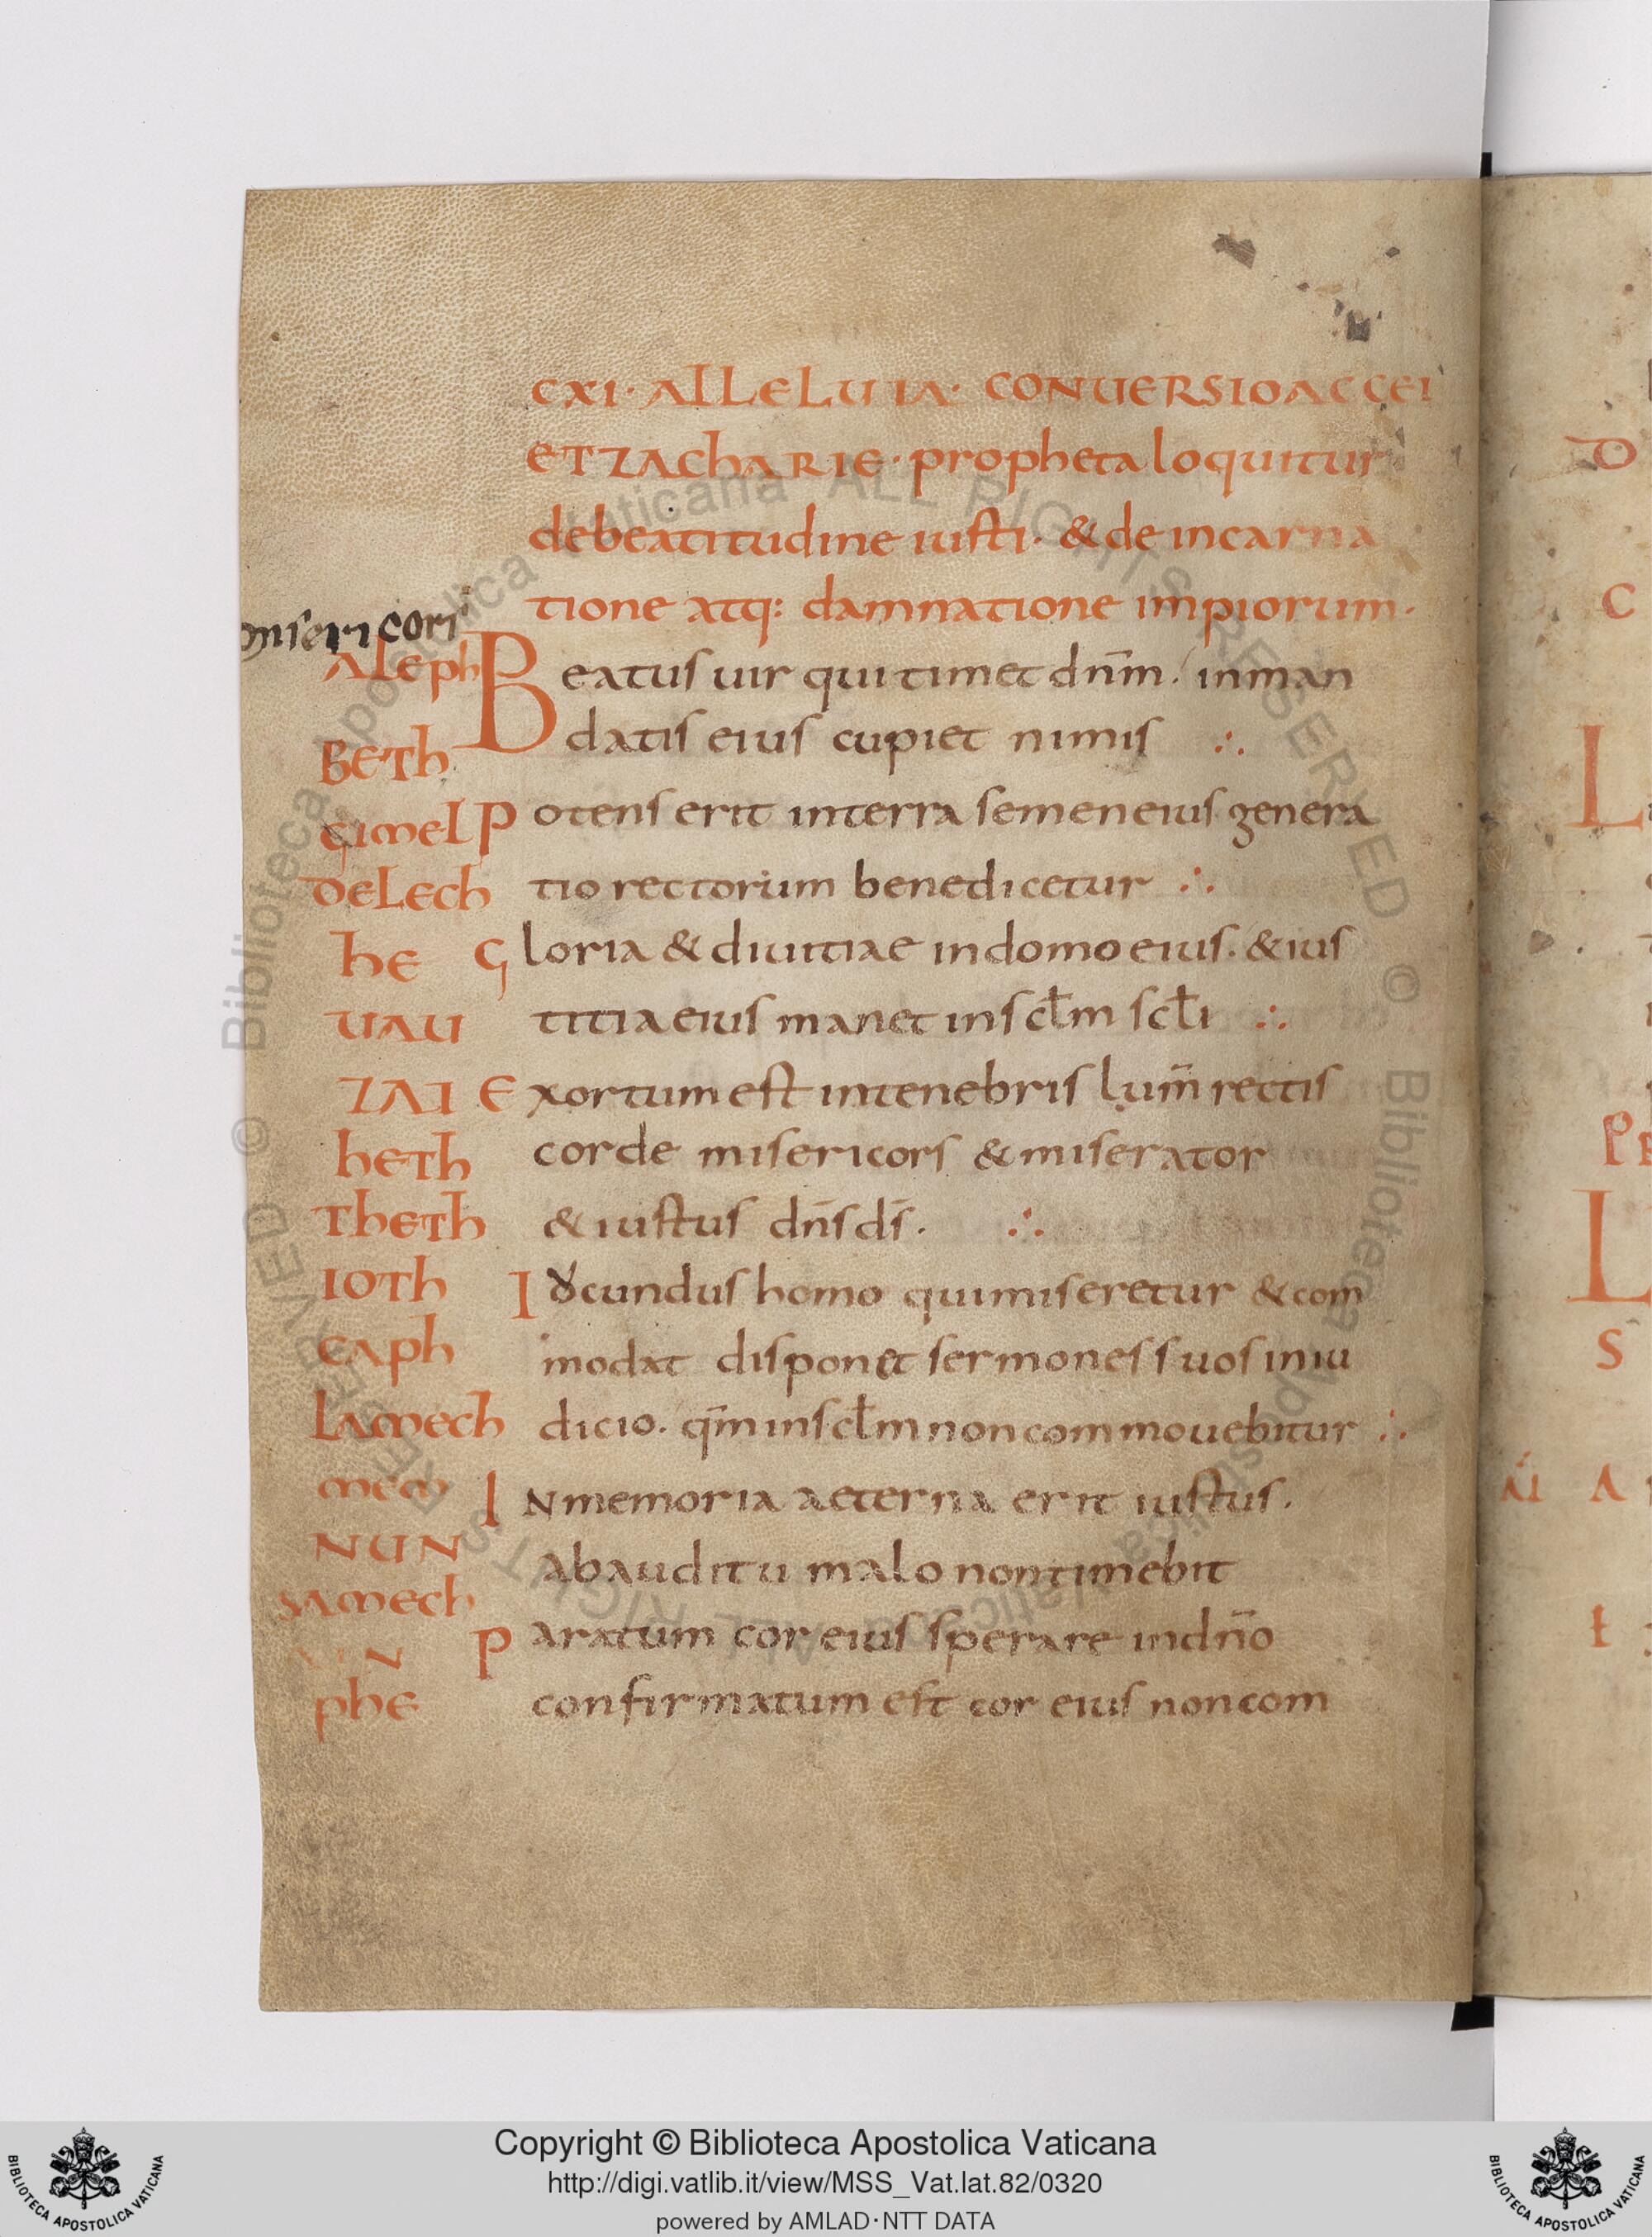 CXI· ALLELUIA· CONUERSIOACCEI
ETZACHARIE· propheta loquitur
debeatitudine iusti· & de incarna
tione atq: damnatione impiorum·
misericori
Aleph Beatus uir qui timet dn̄m· inman
datis eius cupiet nimis ∴
Beth
Gimel Potens erit interra semen eius genera
Delech tio rectorum benedicetur ∴
he Gloria & diuitiae indomo eius· & ius
uau titia eius manet inscłm scłi ∴
ZAI Exortum est intenebris lum̄ rectis
heth corde misericors & miserator
Theth & iustus dn̄s ds̄· ∴
IOTh Iȣcundus homo quimiseretur & com
caph modat disponet sermones suos iniu
Lamech dicio· qm̄ inscłm non commouebitur ∴
mem INmemoria aeterna erit iustus·
NUN abauditu malo nontimebit
samech
Paratum cor eius sperare indn̄o
phe confirmatum est cor eius noncom
D
C
L
L
S
A
ł
Copyright © Biblioteca Apostolica Vaticana
http://digi.vatlib.it/view/MSS_Vat.lat.82/0320
powered by AMLAD·NTT DATA
BIBLIOTECA APOSTOLICA VATICANA
BIBLIOTECA APOSTOLICA VATICANA
© Biblioteca Apostolica Vaticana ALL RIGHTS RESERVED
© Biblioteca Apostolica Vaticana ALL RIGHTS RESERVED